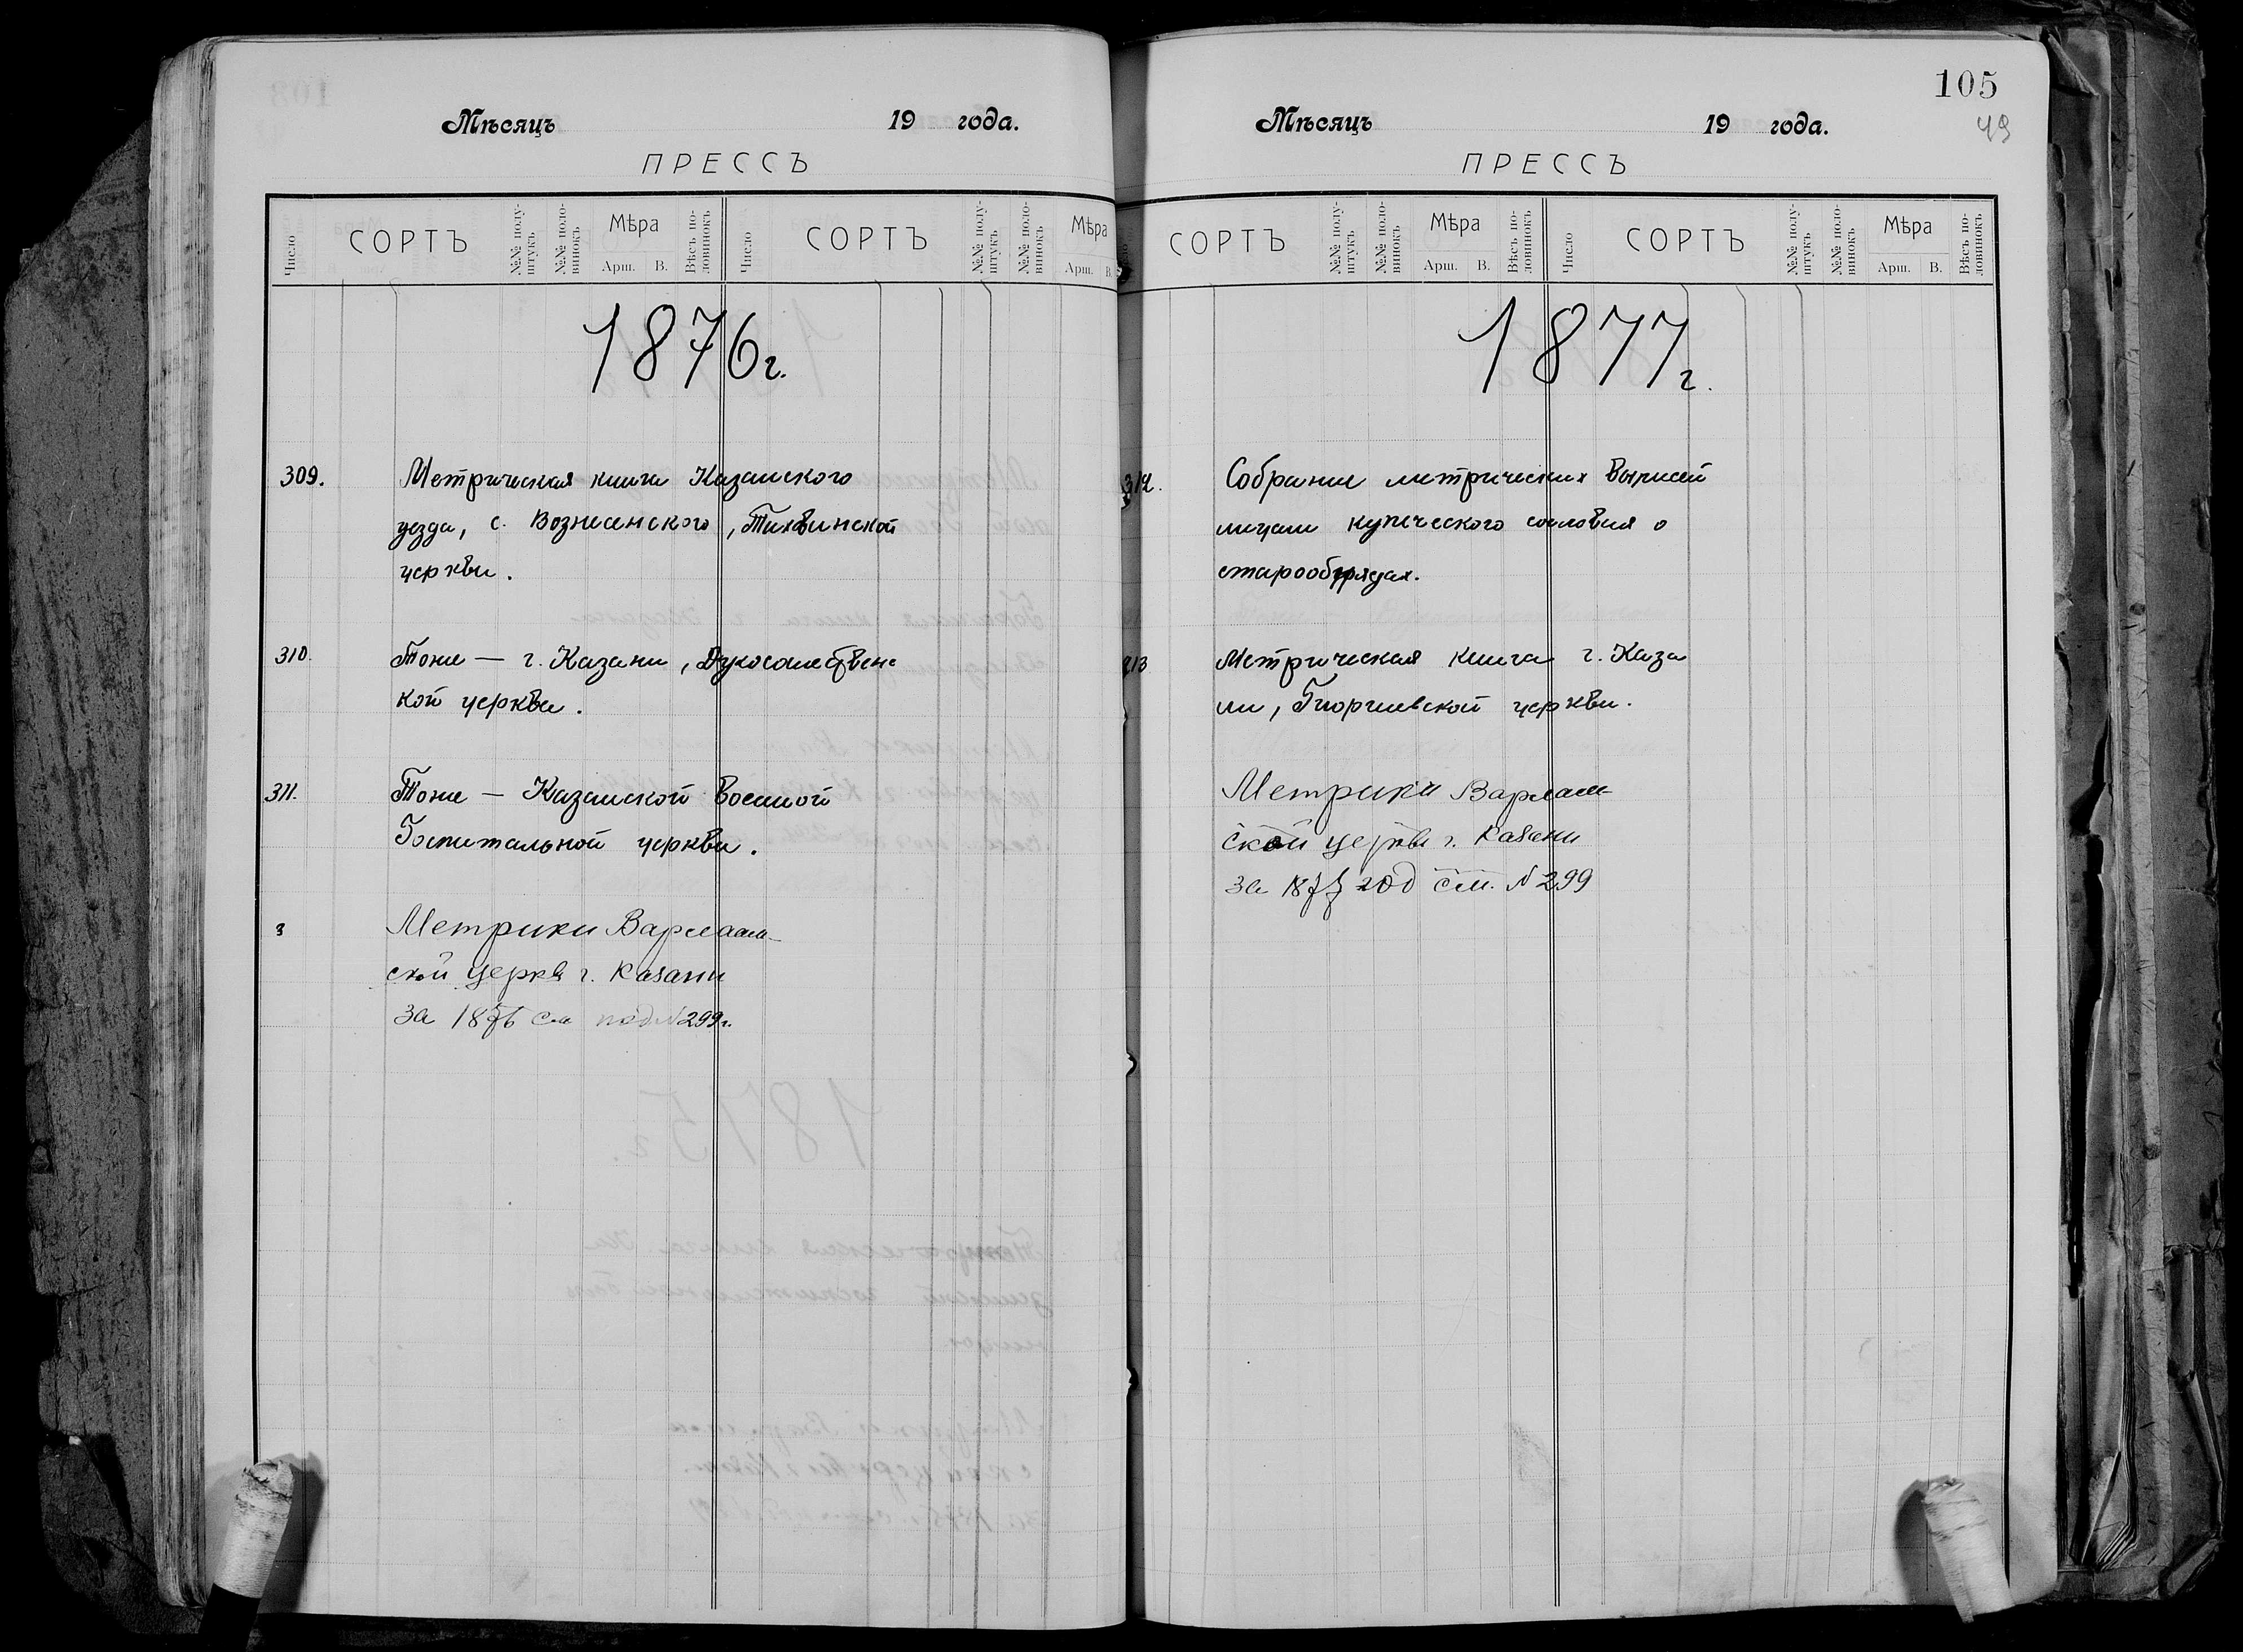 Мѣсяцъ 19 года.
ПРЕССЪ
Число СОРТЪ №№ полу-штукъ №№ поло-винокъ Мѣра Арш. В. Вѣсъ по-ловинокъ Число СОРТЪ №№ полу-штукъ №№ поло-винокъ Мѣра Арш. В.
1876 г.
309. Метрическая книга Казанского
уезда, с. Вознесенского, Тихвинской
церкви.
310. Тоже — г. Казани, Духосошественс
кой церкви.
311. Тоже — Казанской Военной
Госпитальной церкви.
Метрики Варлаам-
ской церкв г. Казани
за 1876 см под N 299 г.
105
49
Мѣсяцъ 19 года.
ПРЕССЪ
СОРТЪ №№ полу-штукъ №№ поло-винокъ Мѣра Арш. В. Вѣсъ по-ловинокъ Число СОРТЪ №№ полу-штукъ №№ поло-винокъ Мѣра Арш. В. Вѣсъ по-ловинокъ
1877 г.
312. Собрание метрических выписей
лицам купеческого сословия о
старообрядах.
313 Метрическая книга г. Каза
ни, Георгиевской церкви.
Метрики Варлаам-
ской церкви г. Казани
за 1877 год см. N 299